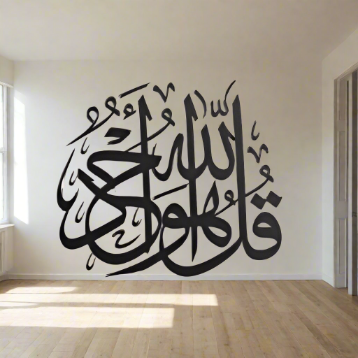 قُلْ هُوَ اللّٰهُ أَحَدٌ